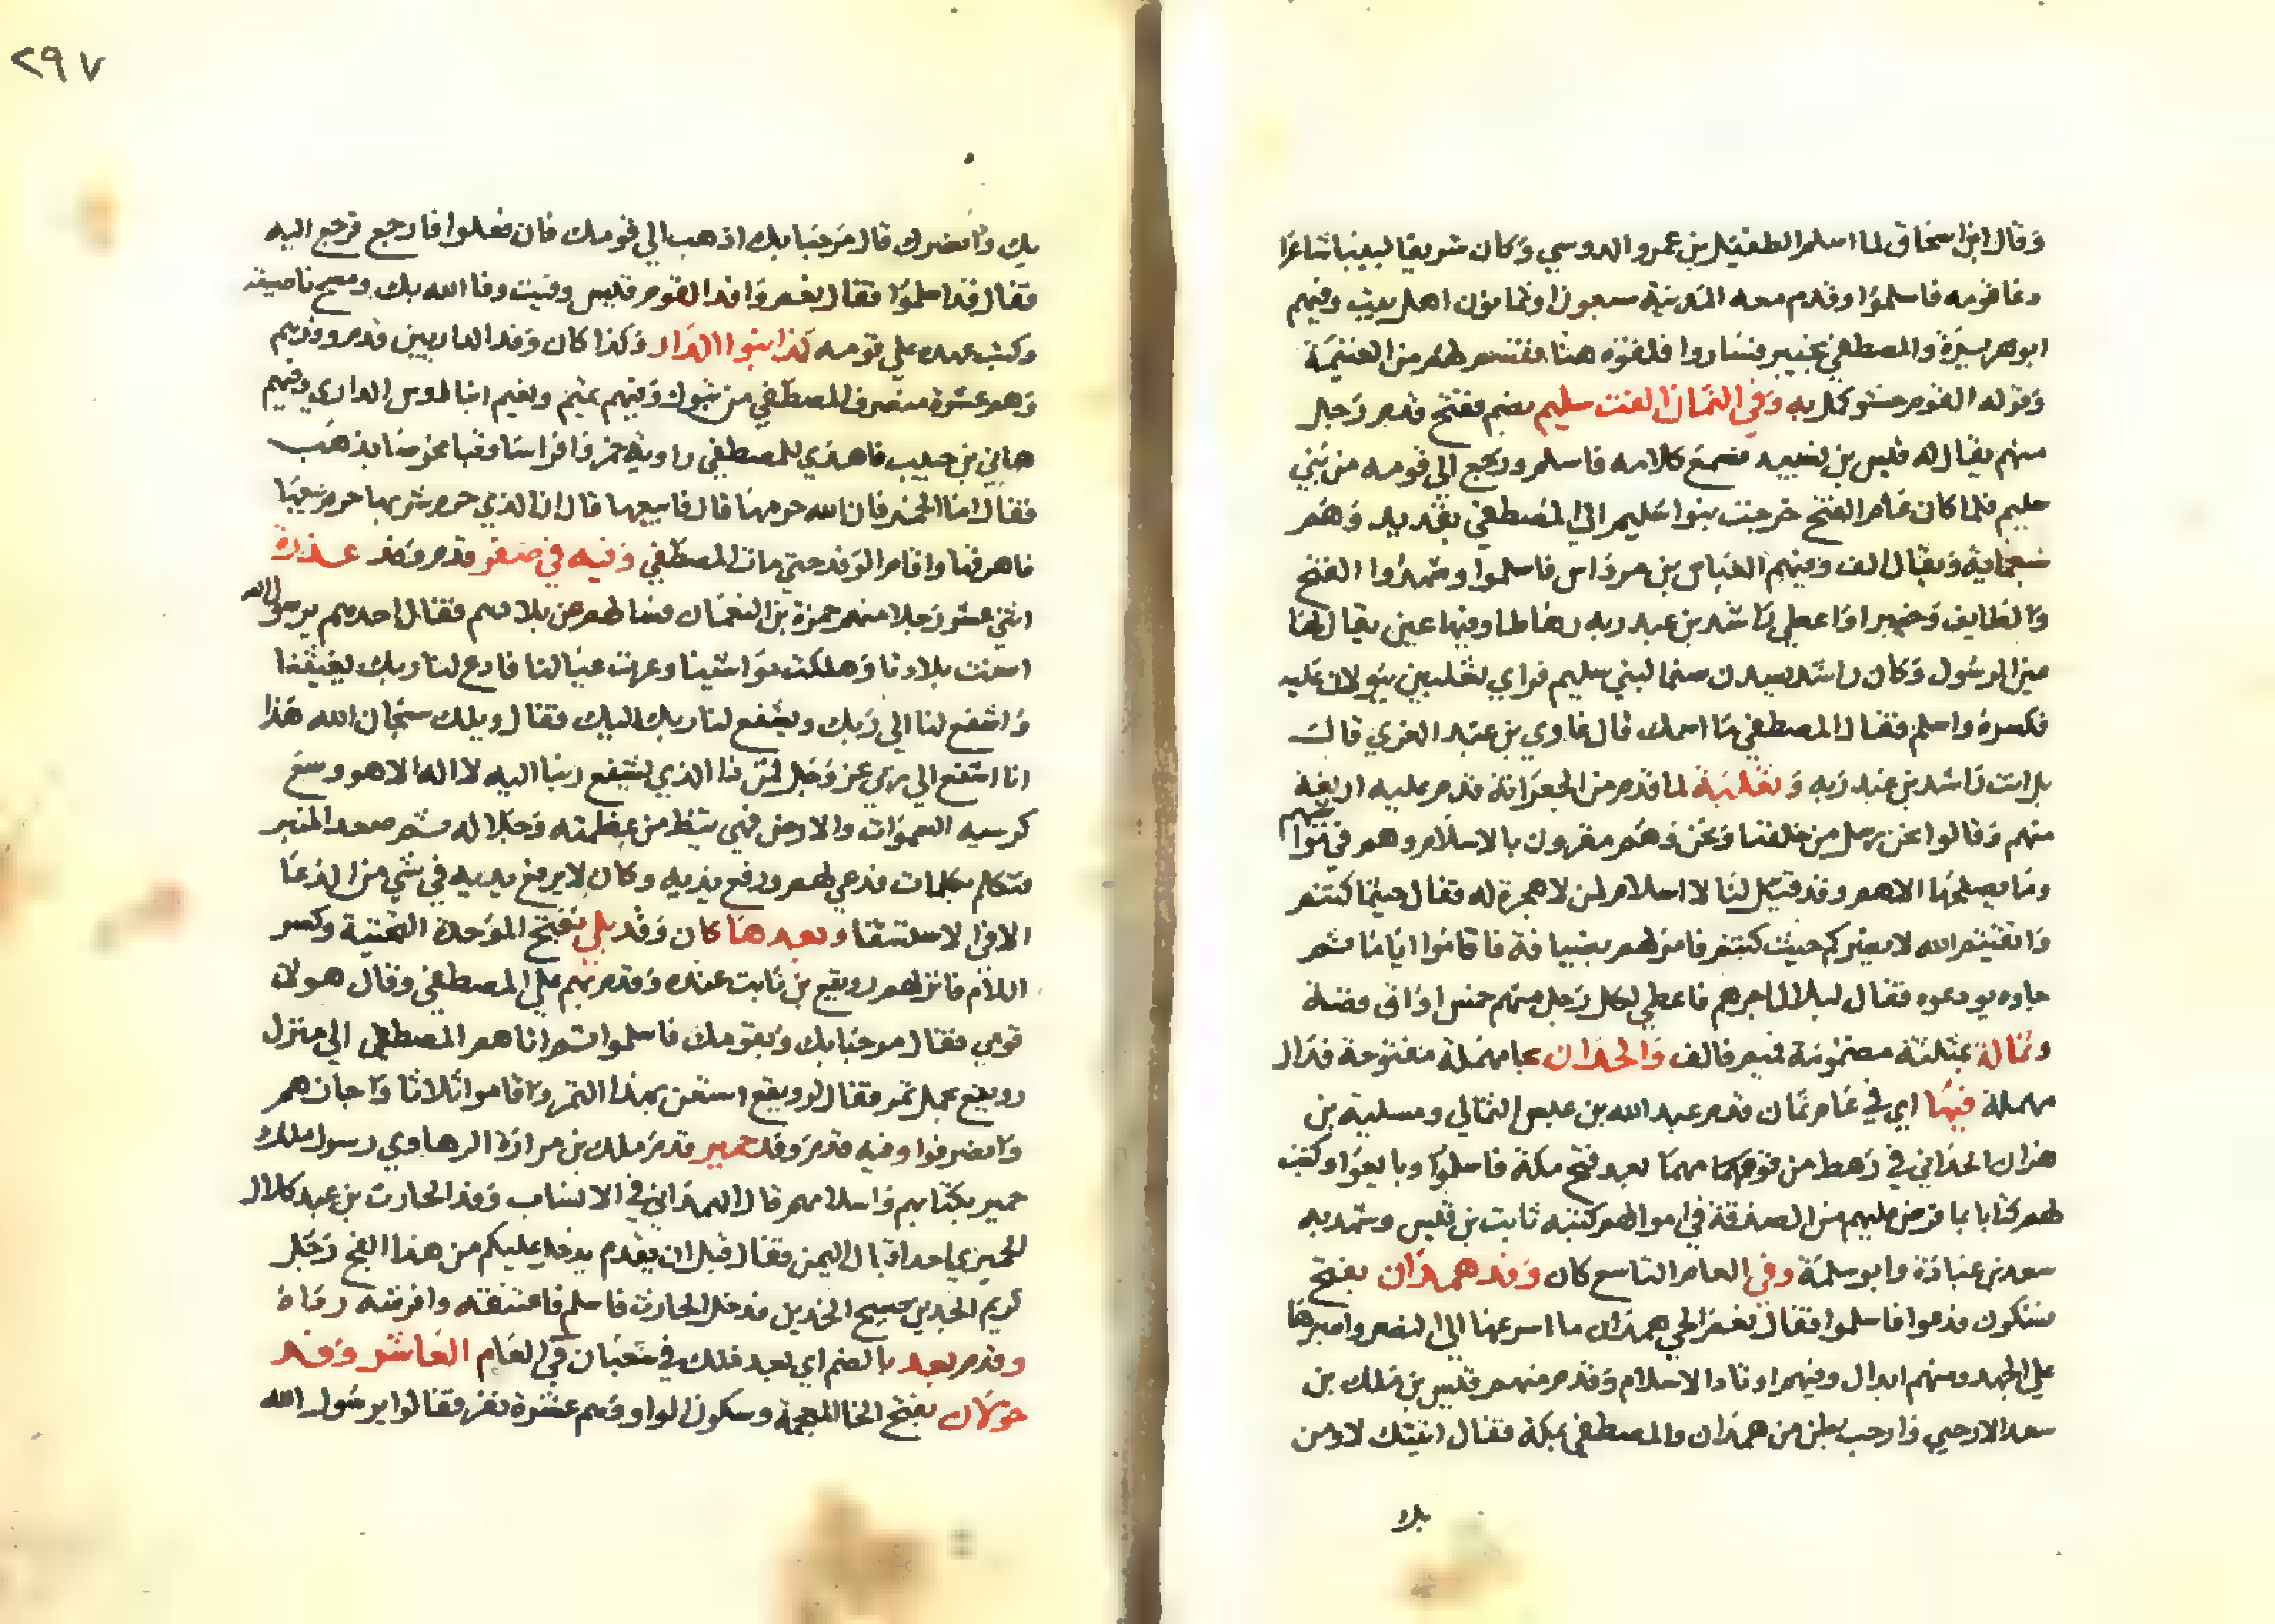 وقال ابن اسحاق لما اسلم الطفيل بن عمرو الدوسي وكان شريفا لبيبا شاعرا
دعا قومه فاسلموا وقدم معه المدينة سبعون او ثمانون اهل بيت وفيهم
ابو هريرة والمصطفي بخيبر فساروا فلقوه هنا فقسم لهم من الغنيمة
وقوله القوم حشو كمل به وفي الثمان الفت سليم بضم ففتح قدم رجل
منهم يقال له قيس بن نسيبه فسمع كلامه فاسلم ورجع الي قومه من بني
سليم فلما كان عام الفتح خرجت بنوا سليم الي المصطفي بقديد وهم
سبعماية ويقال الف وفيهم العباس بن مرداس فاسلموا وشهدوا الفتح
والطايف وخيبرا واعطي راشد بن عبد ربه رهاطا وفيها عين يقال لها
عين الرسول وكان راشد يسدن صنما لبني سليم فراي ثعلبين يبولان عليه
فكسره واسلم فقال المصطفي ما اسمك قال غاوي بن عبد العزي قال
بل انت راشد بن عبد ربه وثعلبة لما قدم من الجعرانة قدم عليه اربعة
منهم وقالوا نحن رسل من خلفنا ونحن وهم مقرون بالاسلام وهم في مواشيهم
وما يصلحها الا هم وقد قيل لنا لا اسلام لمن لا هجرة له فقال حيثما كنتم
واتقيتم الله لا يضركم حيث كنتم فامر لهم بضيافة فاقاموا اياما ثم
جاوه يودعوه فقال لبلال اجرهم فاعطي لكل رجل منهم خمس اواقي فضة
وثمالة بمثلثة مضمومة فميم فالف والحدان بحا مهملة مفتوحة فدال
مهملة فيها اي في عام ثمان قدم عبد الله بن علس الثمالي ومسلية بن
هزان الحداني في رهط من قومهما بعد فتح مكة فاسلموا وبايعوا وكتب
لهم كتابا بما فرض عليهم من الصدقة في اموالهم كتبه ثابت بن قيس وشهد به
سعد بن عبادة وابو سلمة وفي العام التاسع كان وفد همدان بفتح
فسكون فدعوا فاسلموا فقال نعم الحي همدان ما اسرعها الي النصر واصبرها
علي الجهد ومنهم ابدال وفيهم اوتاد الاسلام وقدم منهم قيس بن ملك بن
سعد الارحبي وارحب بطن من همدان والمصطفي بمكة فقال اتيتك لاومن
بك
٢٩٧
بك وانصرك قال مرحبا بك اذهب الي قومك فان فعلوا فارجع فرجع اليه
فقال قد اسلموا فقال نعم وافد القوم قيس وفيت وفا الله بك ومسح ناصيته
وكتب عهده علي قومه كذا بنوا الدار وكذا كان وفد الداريين قدم وفدهم
وهم عشرة منصرف المصطفي من تبوك وفيهم تميم ونعيم ابنا اوس الداري وفيهم
هاني بن حبيب فاهدي للمصطفي راوية خمر وافراسا وقبا مخوصا بذهب
فقال اما الخمر فان الله حرمها قال فابيعها قال ان الذي حرم شربها حرم بيعها
فاهرقها واقام الوفد حتي مات المصطفي وفيه في صفر قدم وفد عذرة
اثني عشر رجلا منهم حمزة بن النعمان فسالهم عن بلادهم فقال احدهم يرسول الله
اسنتت بلادنا وهلكت مواشينا وعريت عيالنا فادع لنا ربك يغيثنا
واشفع لنا الي ربك ويشفع لنا ربك اليك فقال ويلك سبحان الله هذا
انا اشفع الي ربي عز وجل فمن ذا الذي يشفع ربنا اليه لا اله الا هو وسع
كرسيه السموات والارض فهي تيط من عظمته وجلاله ثم صعد المنبر
فتكلم بكلمات فدعي لهم ورفع يديه وكان لا يرفع يديه في شي من الدعا
الا في الاستسقا وبعدها كان وفد بلي بفتح الموحدة التحتية وكسر
اللام فانزلهم رويفع بن ثابت عنده وقدم بهم علي المصطفي وقال هولا
قومي فقال مرحبا بك وبقومك فاسلموا ثم اتاهم المصطفي الي منزل
رويفع بحمل تمر فقال لرويفع استعن بهذا التمر واقاموا ثلاثا واجازهم
وانصرفوا وفيه قدم وفد حمير قدم ملك بن مرارة الرهاوي رسول ملك
حمير بكتابهم واسلامهم قال الهمداني في الانساب وفد الحارث بن عبد كلال
الحميري احد اقيال اليمن فقال قبل ان يقدم يدخل عليكم من هذا الفج رجل
كريم الجدين صبيح الخدين فدخل الحارث فاسلم فاعتنقه وافرشه رداه
وقدم بعد بالضم اي بعد ذلك في شعبان في العام العاشر وفد
خولان بفتح الخا المعجمة وسكون الواو وهم عشرة نفر فقالوا يرسول الله